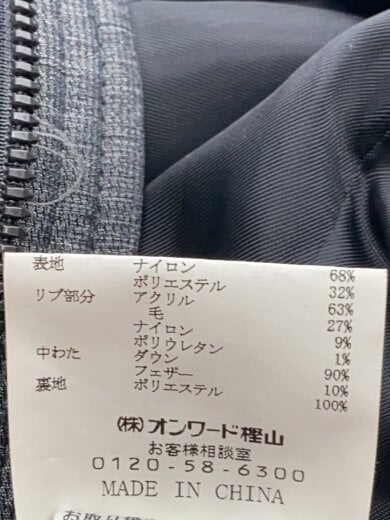 表地 ナイロン 68%
ポリエステル 32%
リブ部分 アクリル 63%
毛 27%
ナイロン 9%
ポリウレタン 1%
中わた ダウン 90%
フェザー 10%
裏地 ポリエステル 100%
(株)オンワード樫山
お客様相談室
0120-58-6300
MADE IN CHINA
お取り扱